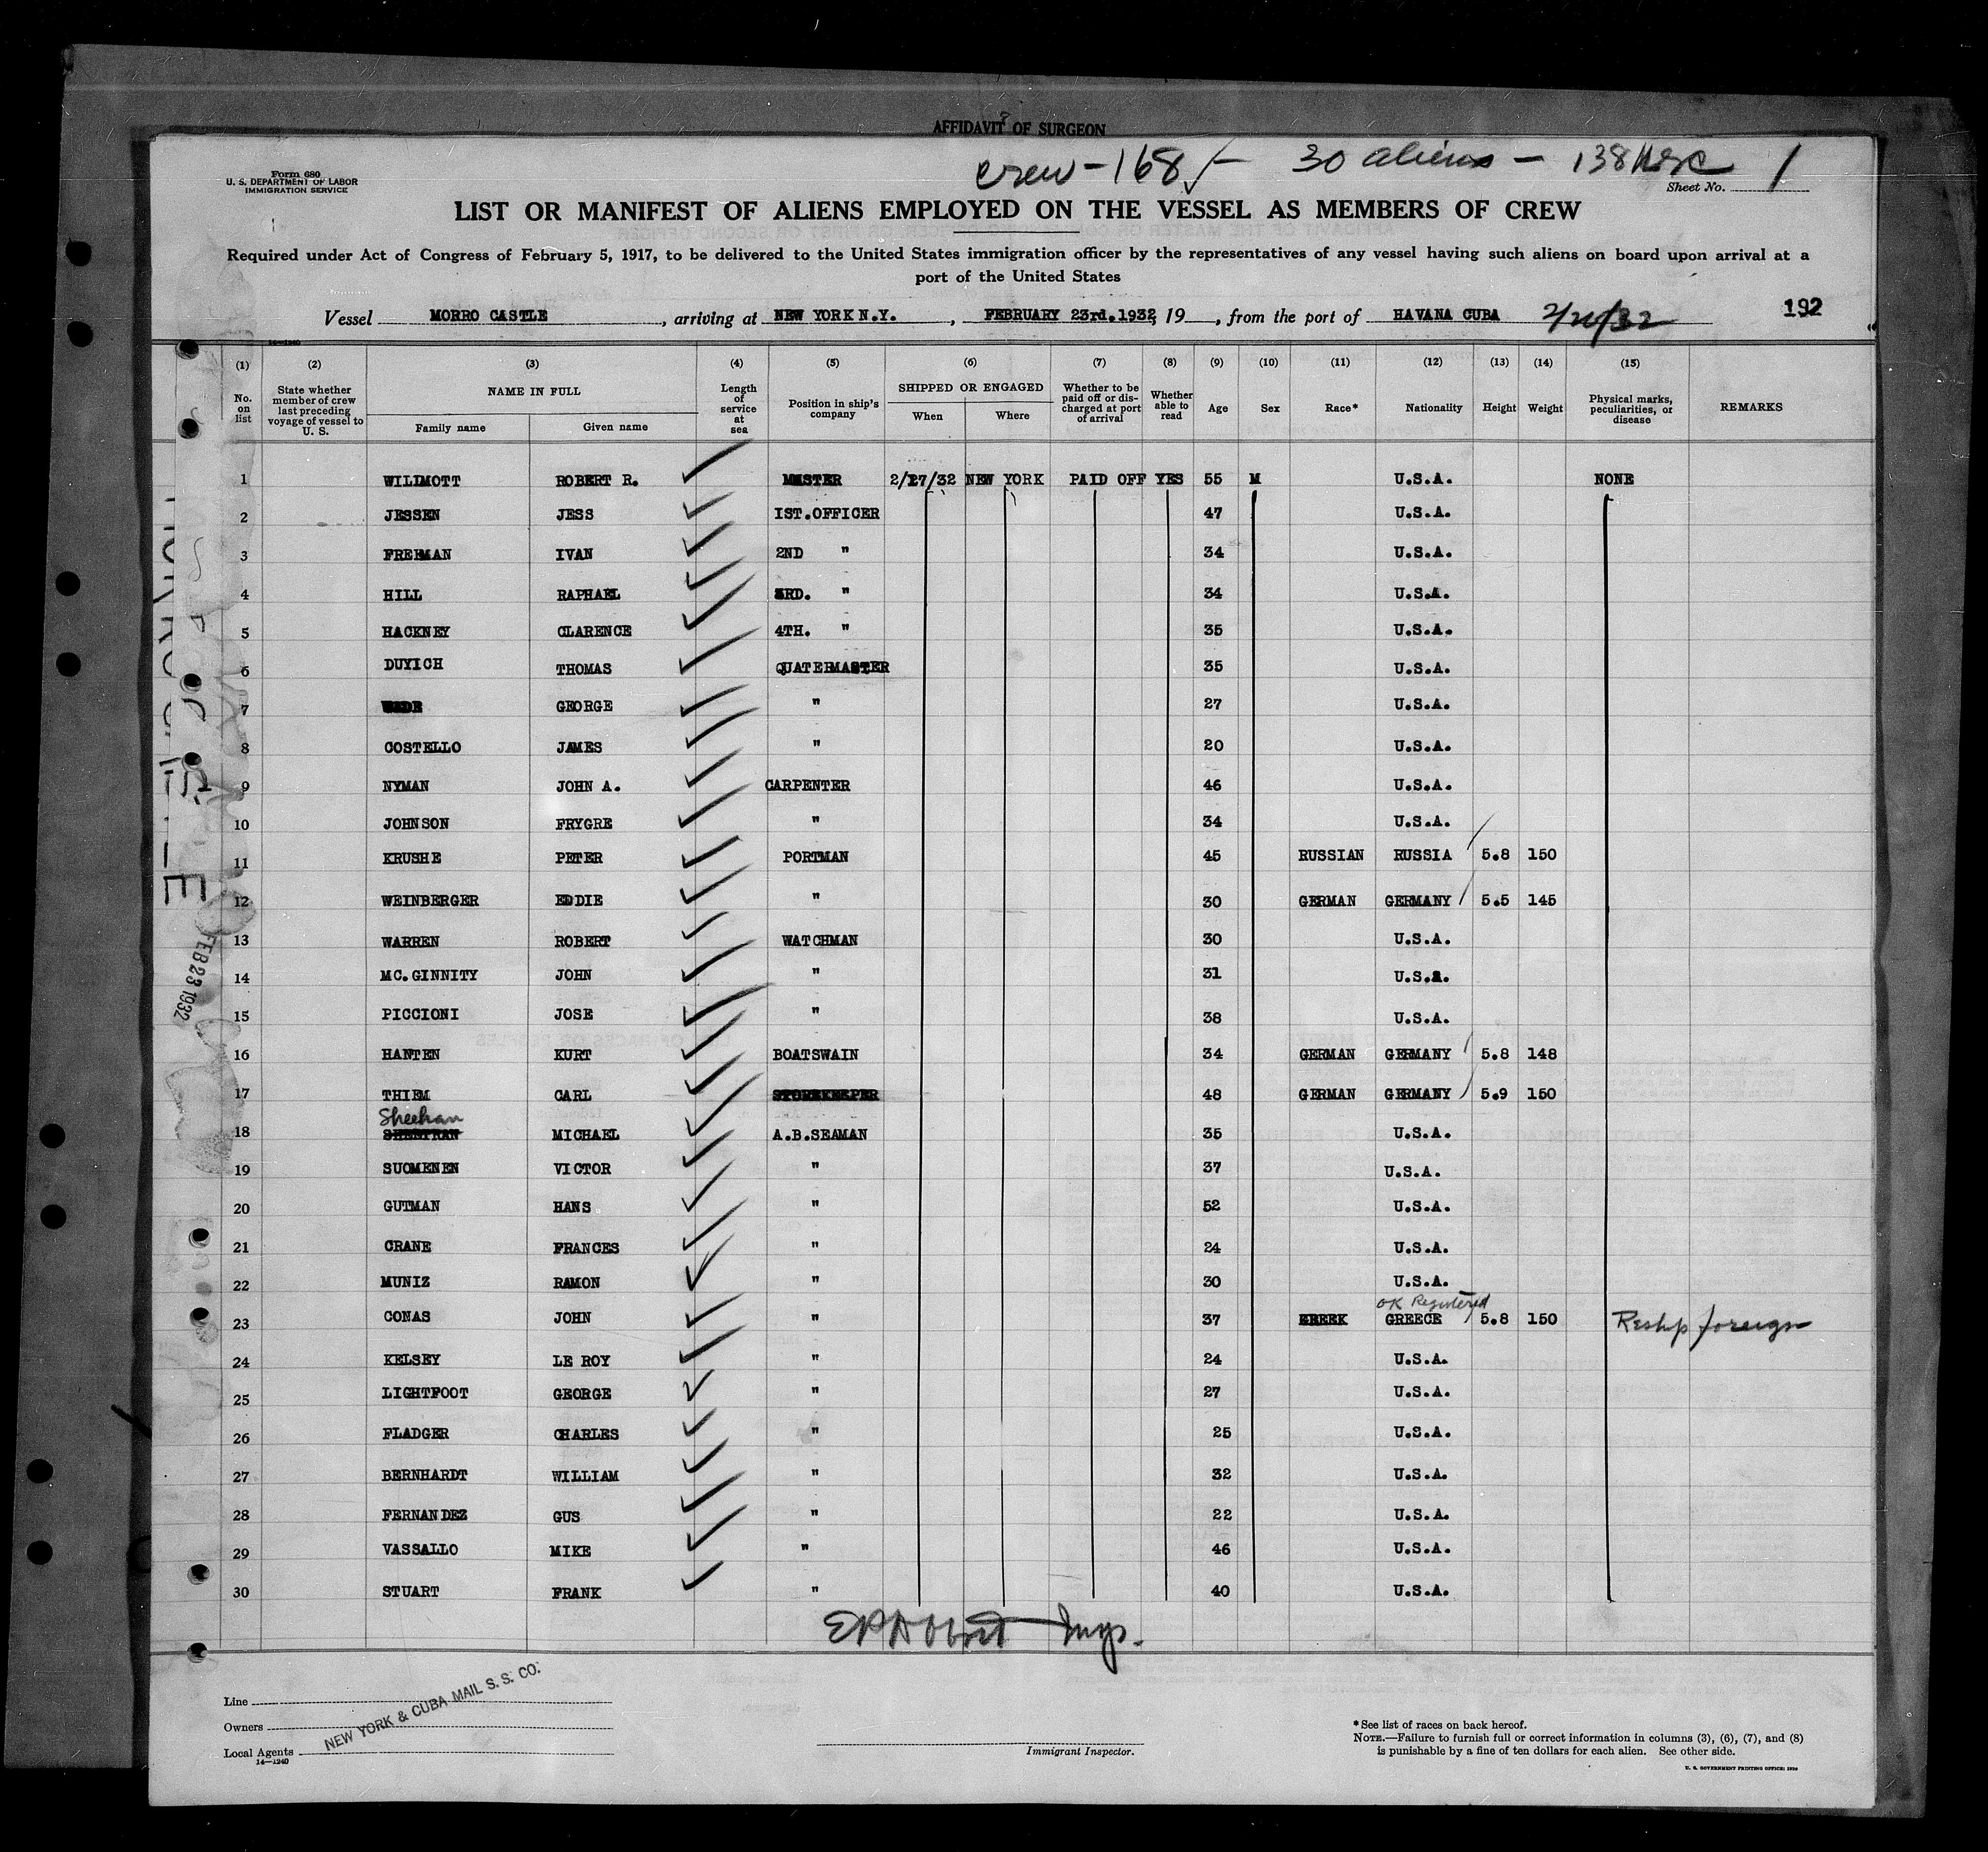 AFFIDAVIT OF SURGEON
crew - 168 - 30 aliens - 138 USC
Form 680
U. S. DEPARTMENT OF LABOR
IMMIGRATION SERVICE
Sheet No. 1
LIST OR MANIFEST OF ALIENS EMPLOYED ON THE VESSEL AS MEMBERS OF CREW
Required under Act of Congress of February 5, 1917, to be delivered to the United States immigration officer by the representatives of any vessel having such aliens on board upon arrival at a
port of the United States
Vessel MORRO CASTLE, arriving at NEW YORK N.Y., FEBRUARY 23rd.1932, 19, from the port of HAVANA CUBA 2/20/32 192
14-1240
(1) (2) (3) (4) (5) (6) (7) (8) (9) (10) (11) (12) (13) (14) (15)
No. on list
State whether member of crew last preceding voyage of vessel to U. S.
NAME IN FULL
Family name Given name
Length of service at sea
Position in ship's company
SHIPPED OR ENGAGED
When Where
Whether to be paid off or discharged at port of arrival
Whether able to read
Age Sex Race* Nationality Height Weight
Physical marks, peculiarities, or disease
REMARKS
1 WILLMOTT ROBERT R. MASTER 2/17/32 NEW YORK PAID OFF YES 55 M U.S.A. NONE
2 JESSEN JESS IST.OFFICER 47 U.S.A.
3 FREEMAN IVAN 2ND " 34 U.S.A.
4 HILL RAPHAEL 3RD. " 34 U.S.A.
5 HACKNEY CLARENCE 4TH. " 35 U.S.A.
6 DUYICH THOMAS QUATERMASTER 35 U.S.A.
7 WADE GEORGE " 27 U.S.A.
8 COSTELLO JAMES " 20 U.S.A.
9 NYMAN JOHN A. CARPENTER 46 U.S.A.
10 JOHNSON FRYGRE " 34 U.S.A.
11 KRUSHE PETER PORTMAN 45 RUSSIAN RUSSIA 5.8 150
12 WEINBERGER EDDIE " 30 GERMAN GERMANY 5.5 145
13 WARREN ROBERT WATCHMAN 30 U.S.A.
14 MC.GINNITY JOHN " 31 U.S.A.
15 PICCIONI JOSE " 38 U.S.A.
16 HANTEN KURT BOATSWAIN 34 GERMAN GERMANY 5.8 148
17 THIEM CARL STOREKEEPER 48 GERMAN GERMANY 5.9 150
Sheehan
18 MICHAEL A.B.SEAMAN 35 U.S.A.
19 SUOMENEN VICTOR " 37 U.S.A.
20 GUTMAN HANS " 52 U.S.A.
21 CRANE FRANCES " 24 U.S.A.
22 MUNIZ RAMON " 30 U.S.A.
OK Registered
23 CONAS JOHN " 37 GREEK GREECE 5.8 150 Reship foreign
24 KELSEY LE ROY " 24 U.S.A.
25 LIGHTFOOT GEORGE " 27 U.S.A.
26 FLADGER CHARLES " 25 U.S.A.
27 BERNHARDT WILLIAM " 32 U.S.A.
28 FERNANDEZ GUS " 22 U.S.A.
29 VASSALLO MIKE " 46 U.S.A.
30 STUART FRANK " 40 U.S.A.
FEB 23 1932
Line
Owners
Local Agents
NEW YORK & CUBA MAIL S. S. CO.
14-1240
Immigrant Inspector.
*See list of races on back hereof.
NOTE.—Failure to furnish full or correct information in columns (3), (6), (7), and (8)
is punishable by a fine of ten dollars for each alien. See other side.
U. S. GOVERNMENT PRINTING OFFICE: 1929